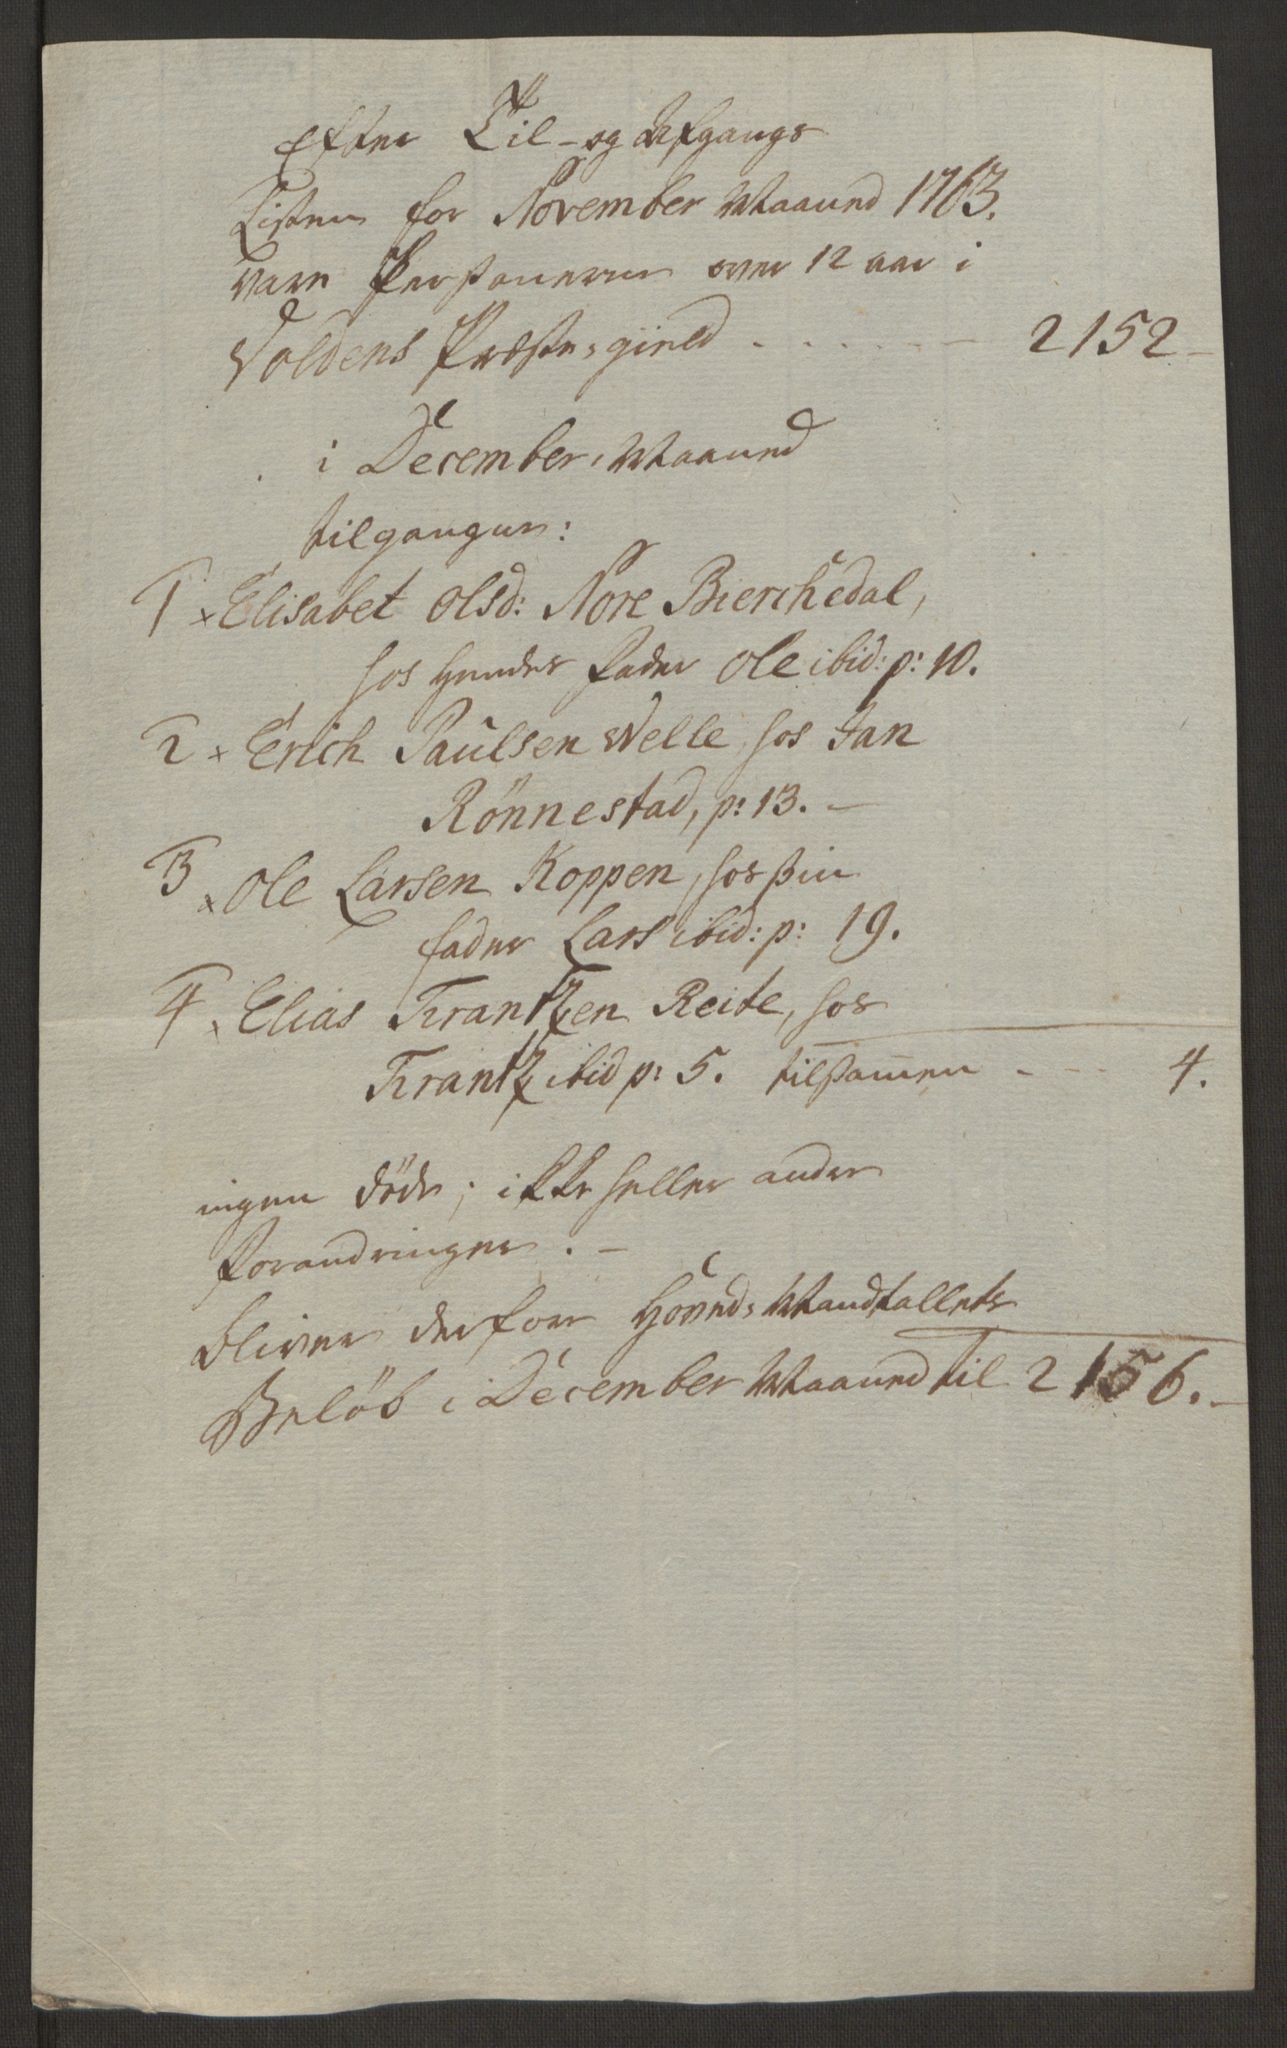 Efter Til- og Afgangs
Listen for November Maaned 1763.
vare Personerne over 12 aar i
Voldens Præste-gield - - - - - - 2152-
i December Maaned
tilganger:
1 x Elisabet Olsd: Nore Bierchedal,
hos hendes Fader Ole ibid: p: 10.
2 x Erich Paulsen Welle, hos Jan
Rönnestad, p: 13. -
3 x Ole Larsen Koppen, hos sin
fader Lars ibid: p: 19.
4 x Elias Frantzen Reite, hos
Frantz ibid p: 5. tilsam̄en - - - 4.
ingen döde; ikke heller andre
forandringer. -
bliver derfor Hoved-Mandtallets
Belöb i December Maaned til 2156.-